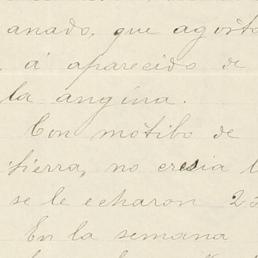 anado, que agosto
á aparecido de
la angina.
Con motibo de
tierra, no cresia l
se le echaron 2
En la semana